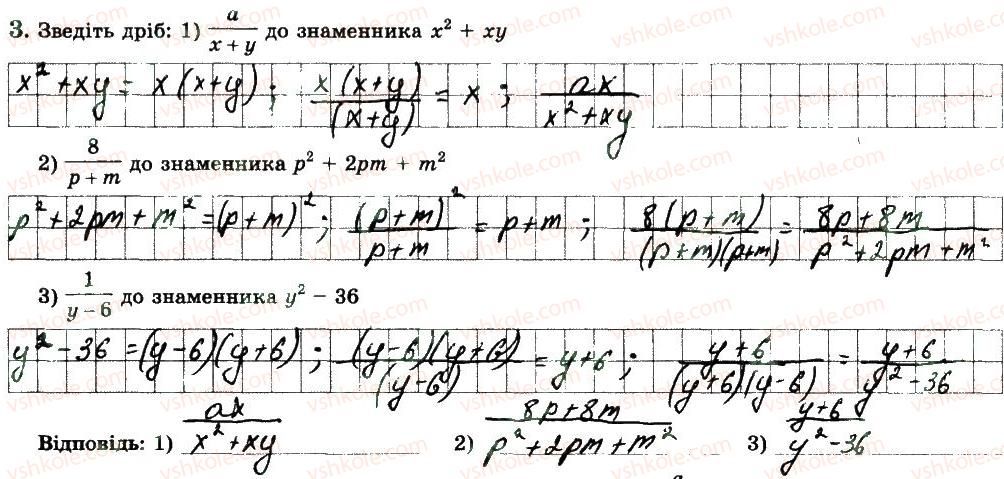 3. Зведіть дріб: 1) a/(x + y) до знаменника x² + xy
x² + xy = x(x+y); x(x+y)/(x+y) = x; ax/(x²+xy)
2) 8/(p + m) до знаменника p² + 2pm + m²
p² + 2pm + m² = (p+m)²; (p+m)²/(p+m) = p+m; 8(p+m)/((p+m)(p+m)) = (8p+8m)/(p²+2pm+m²)
3) 1/(y – 6) до знаменника y² – 36
y² – 36 = (y–6)(y+6); (y–6)(y+6)/(y–6) = y+6; (y+6)/((y+6)(y–6)) = (y+6)/(y²–36)
Відповідь: 1) ax/(x²+xy) 2) (8p+8m)/(p²+2pm+m²) 3) (y+6)/(y²–36)
vshkole.com